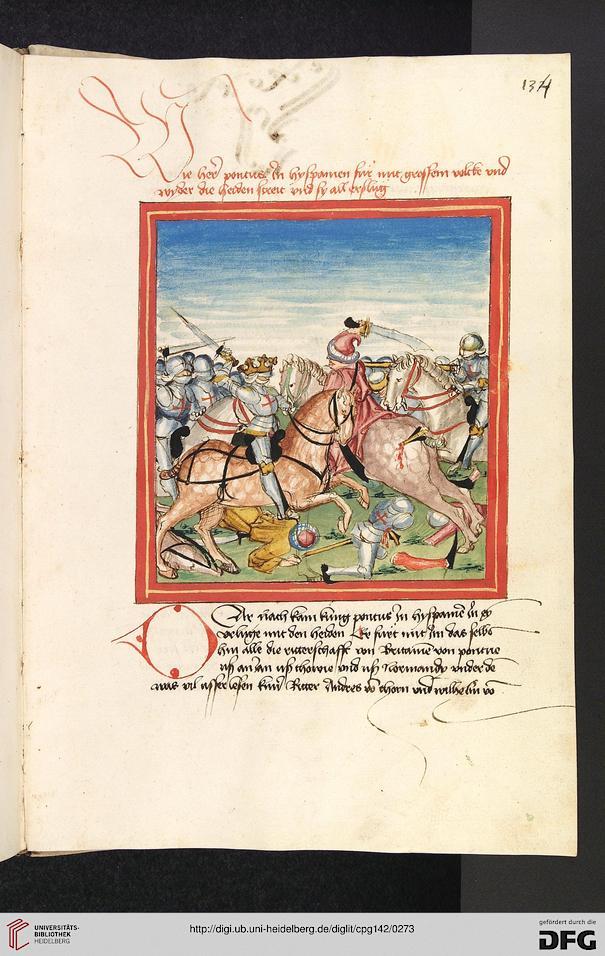 134
Wie her pontus In hyspanien für mit grossem volcke und
wyder die heiden streit und sy all erslüg
Dar nach kam küng pontus In hyspanie In ey
mit den heiden Er fürt mit Im das selbs
hin alle die ritterschafft von Britanie von
uß und uß Normandy under de
was vil usserlesen Ritter Andres vo und wilhelm vo
UNIVERSITÄTS-
BIBLIOTHEK
HEIDELBERG
http://digi.ub.uni-heidelberg.de/diglit/cpg142/0273
gefördert durch die
DFG